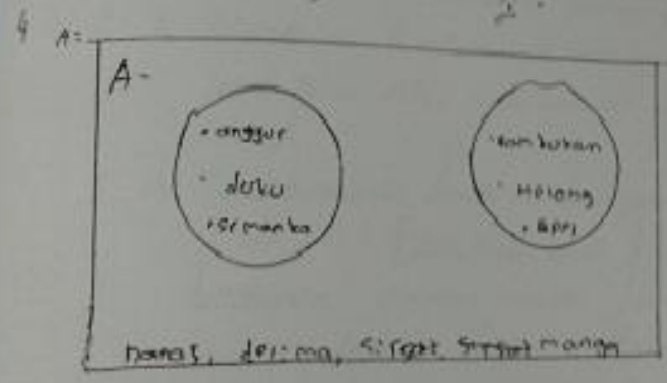 4 A=
A-
• anggur
• duku
• semanka
• Rambutan
• Melong
• Apel
nanas, delima, sirsat, manga